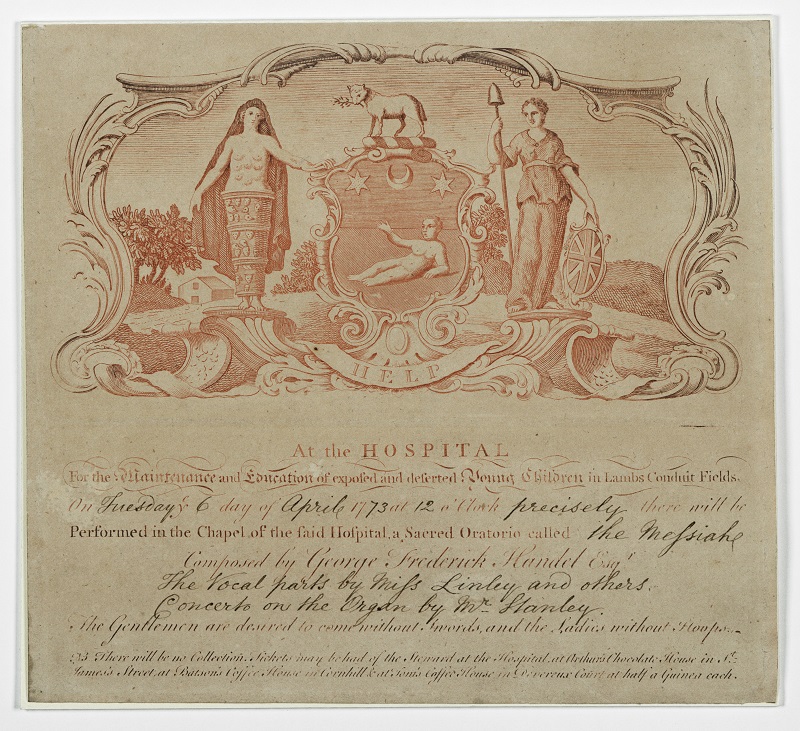 HELP
At the HOSPITAL
For the Maintenance and Education of exposed and deserted Young Children in Lambs Conduit Fields,
On Tuesday ye 6 day of April 1773 at 12 o'Clock precisely there will be
Performed in the Chapel, of the said Hospital, a Sacred Oratorio called the Messiah
Composed by George Frederick Handel Esqr.
The Vocal parts by Miss Linley and others.
Concerto on the Organ by Mr. Stanley.
The Gentlemen are desired to come without Swords, and the Ladies without Hoops.
NB There will be no Collection. Tickets may be had of the Steward at the Hospital, at Arthur's Chocolate House in St.
James's Street, at Batson's Coffee House in Cornhill & at Tom's Coffee House in Devereux Court at half a Guinea each.